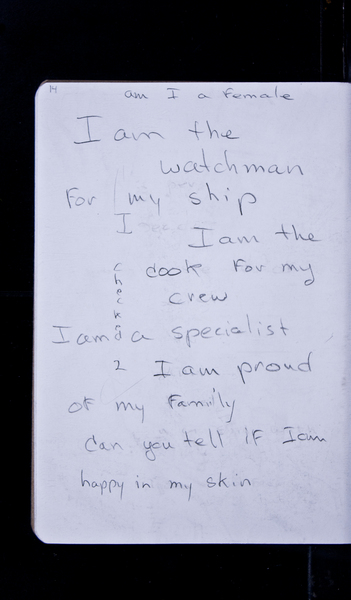 14
am I a female
I am the
watchman
for my ship
I
I am the
cook for my
crew
I am a specialist
checked
2
I am proud
of my family
Can you tell if I am
happy in my skin